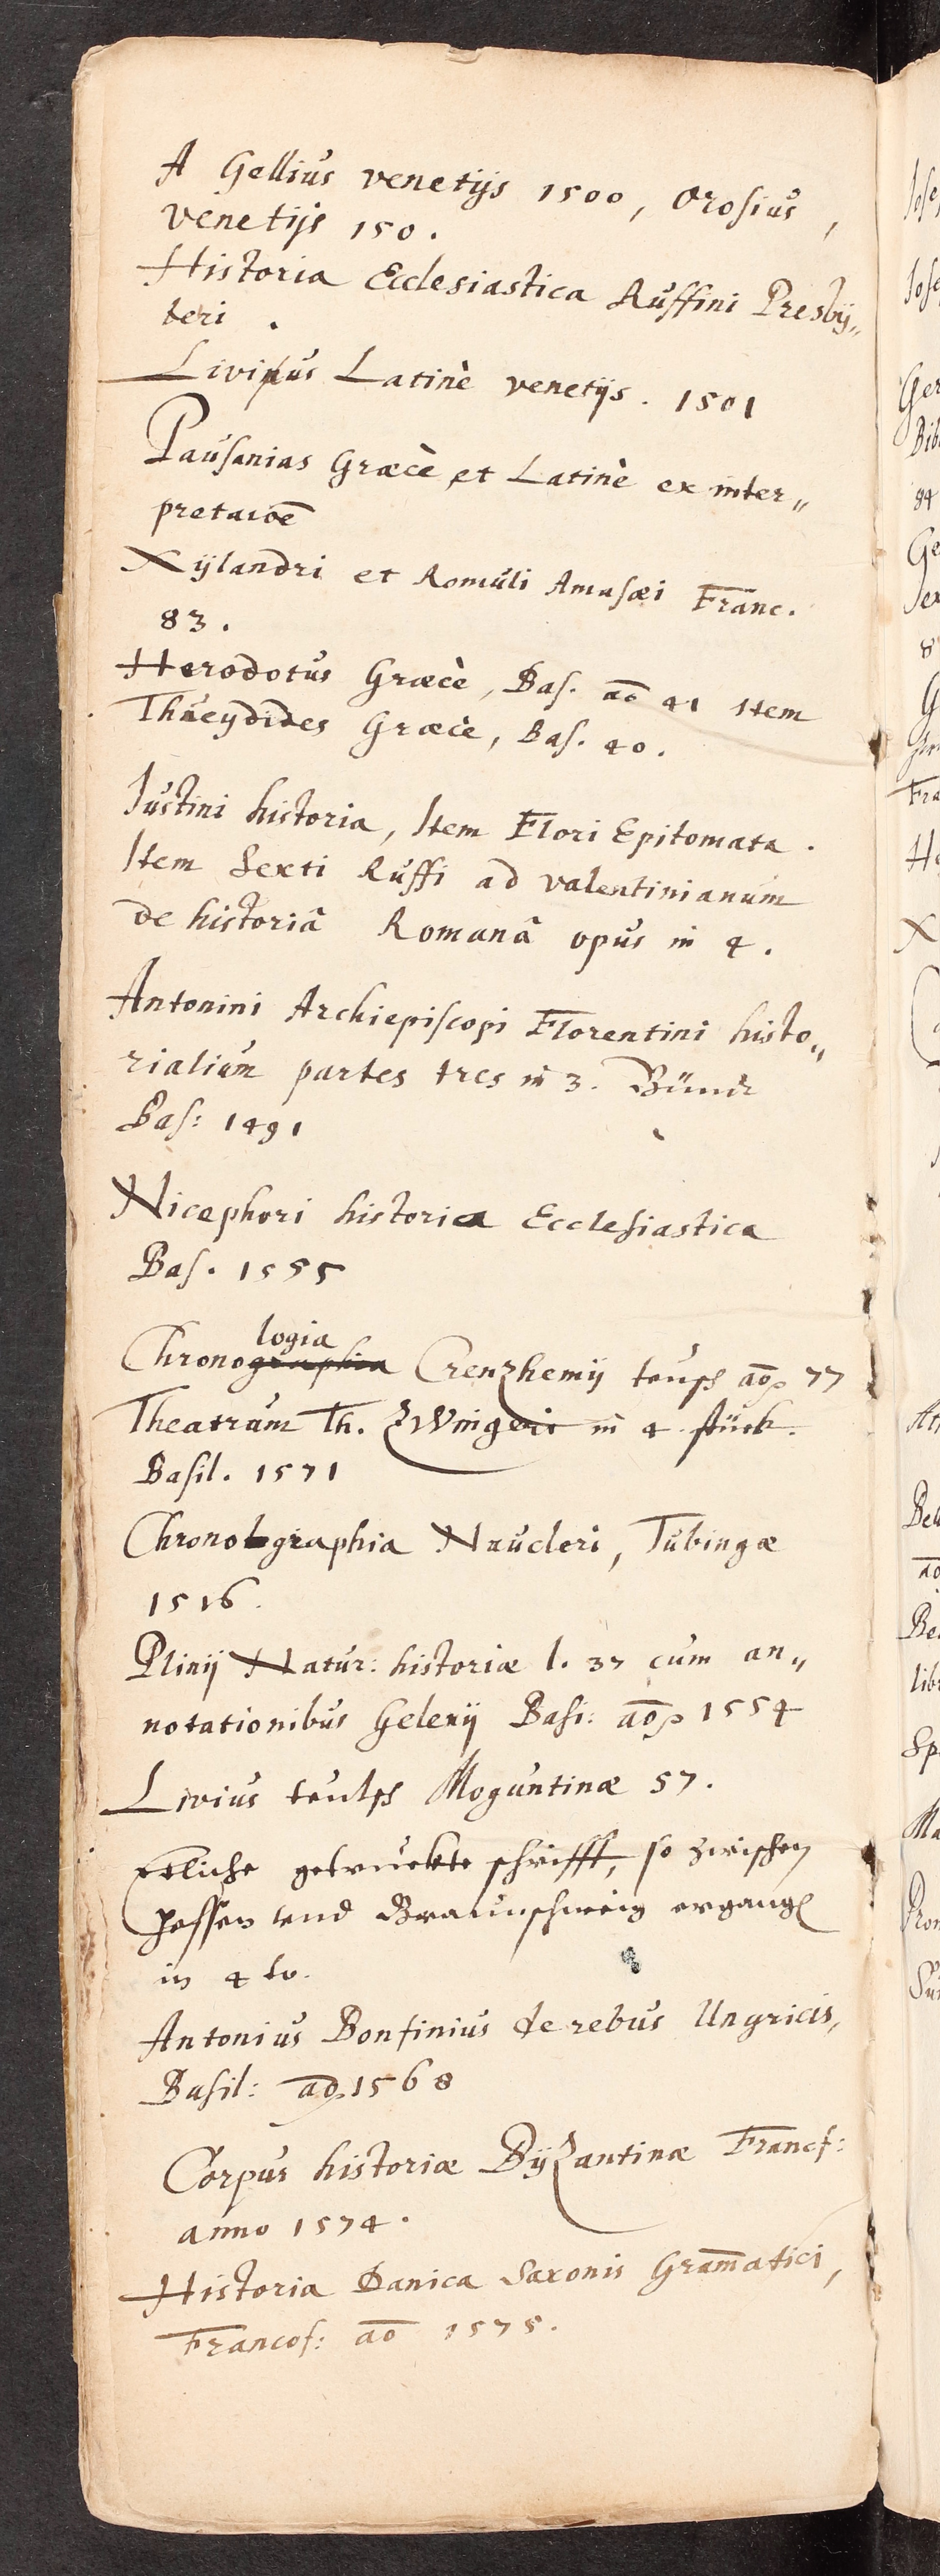 A Gellius venetijs 1500, Orosius,
venetijs 150.
Historia Ecclesiastica Ruffini Presbÿ„
teri.
Livius Latinè venetijs. 1501
Pausanias Græcè et Latinè ex inter„
pretatioē
Xÿlandri et Romŭli Amasæi Franc.
83.
Herodotŭs Græcè, Bas. aō 41 Item
Thucydides Græcè, Bas. 40.
Iŭstini historia, Item Flori Epitomata.
Item Sexti Rŭffi ad valentinianŭm
de historiâ Romanâ opus in 4.
Antonini Archiepiscopi Florentini histo„
rialiŭm partes tres in 3. Bünde
Bas: 1491
Nicephori historica Ecclesiastica
Bas. 1555
logia
Chronographia teŭsch aō 77
Theatrŭm Th. Zwingeri in 4 stück.
Basil. 1571
Chronographia Naŭcleri, Tŭbingæ
1516.
Plinij Natŭr: historiæ l. 37 cum an„
notationibŭs Gelenij Basi: aō 1554
Liviŭs teŭtsch Mogŭntinæ 57.
etliche getrŭckte schrifft, so zwischen
Hessen vnd Braunschweig ergangē
in 4to.
Antonius Bonfiniŭs de rebŭs Ungricis,
Basil: aō 1568
Corpŭs historiæ Bÿzantinæ Francf:
anno 1574.
Historia Danica Saxonis Gram̄atici,
Francof: aō 1575.